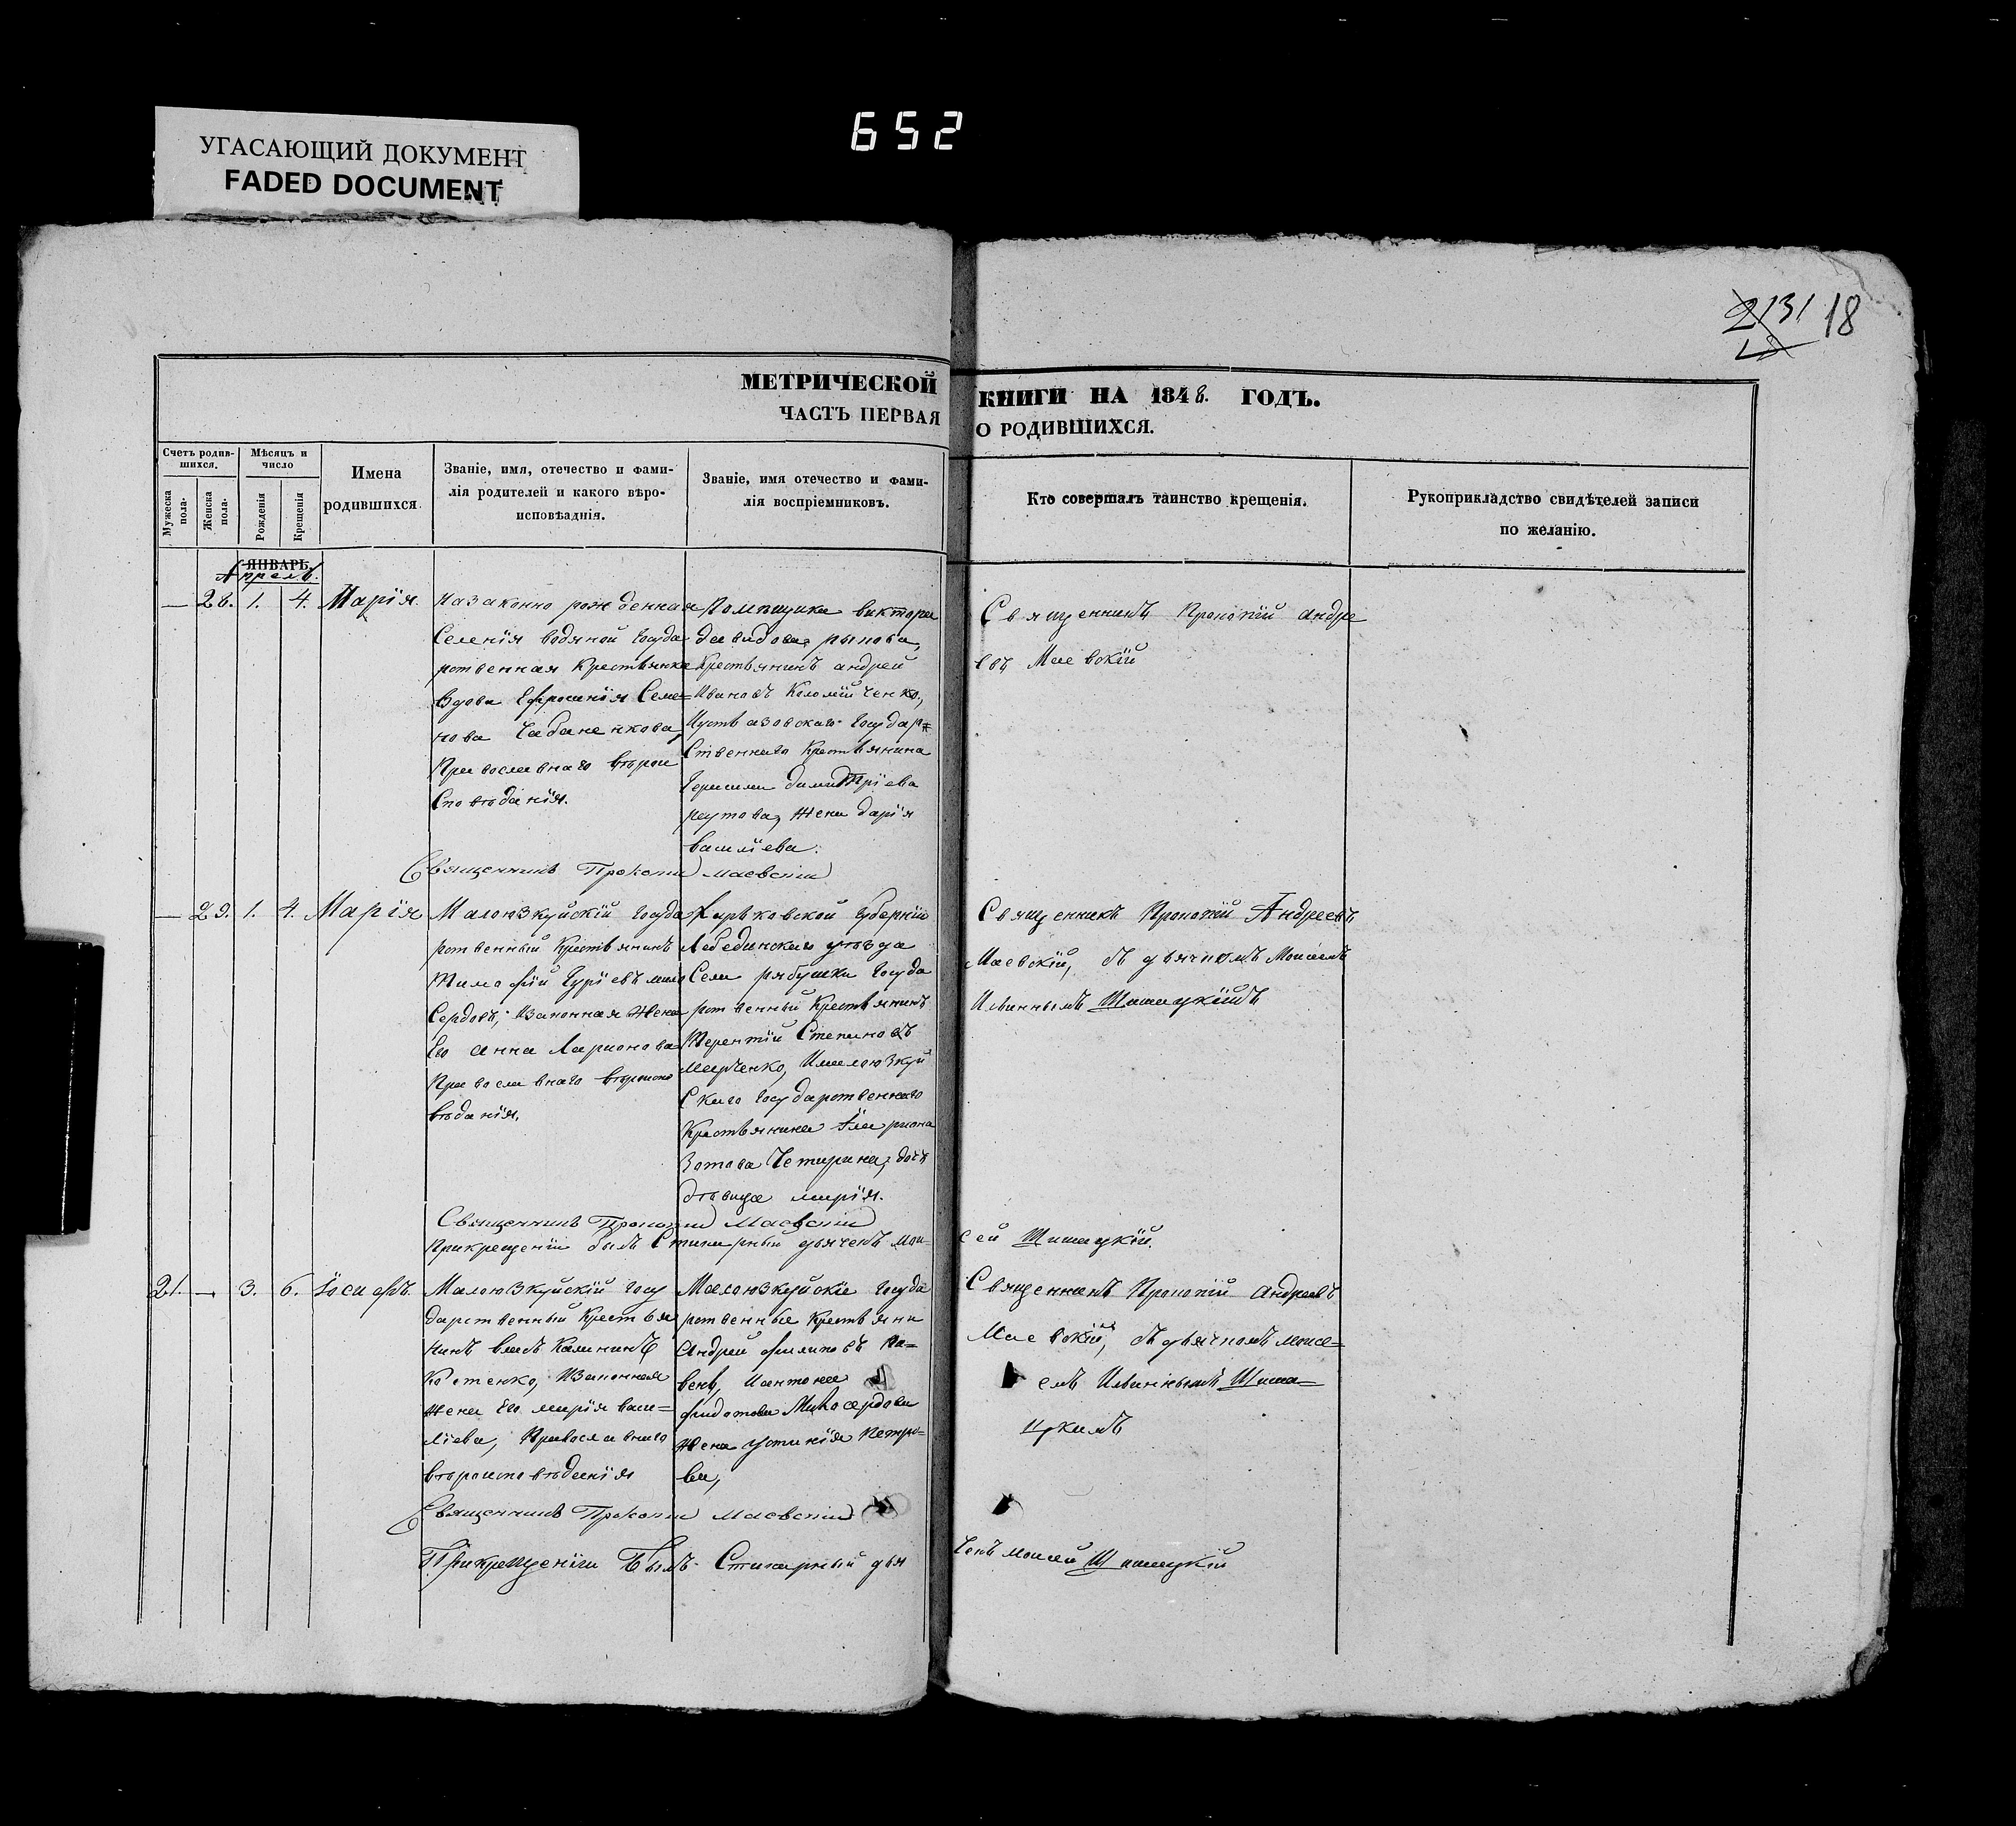 652
УГАСАЮЩИЙ ДОКУМЕНТ
FADED DOCUMENT
18
МЕТРИЧЕСКОЙ КНИГИ НА 1848. ГОДЪ.
ЧАСТЬ ПЕРВАЯ О РОДИВШИХСЯ.
Счетъ родив-
шихся.
Мужеска
пола.
Женска
пола.
Мѣсяцъ и
число
Рожденія
Крещенія
Имена
родившихся.
Званіе, имя, отечество и фами-
лія родителей и какого вѣро-
исповѣднія.
Званіе, имя отечество и фами-
лія воспріемниковъ.
Кто совершалъ таинство крещенія.
Рукоприкладство свидѣтелей записи
по желанію.
ЯНВАРЬ.
Апрель.
— 28. 1. 4. Марія.
Назаконно рожденная
Селенія водяной Госуда
рственная Крестьянка
Вдова Ефросинія Семе=
нова Чабаненкова,
Православнаго вѣрои
Сповѣданія.
Помѣщика виктора
давидова рынова,
Крестьянинъ андрей
Ивановъ Коломійченко,
Иусть азовскаго Государ=
Ственнаго Крестьянина
Герасима димитріева
реутова, жена дарія
василіева.
Священникъ Прокопій андре
евъ Маевскій
Священникъ Прокопій маевскій
— 29. 1. 4. Марія
Малоюзкуйскій Госуда
рственный Крестьянинъ
Тимофій Гуріевъ мило
Сердовъ, Изаконная жена
Его анна Ларионова
Православнаго вѣроиспо
вѣданія.
Харьковской губерніи
Лебединскаго уѣзда
Села рябушки Госуда
рственный Крестьянинъ
Терентій Степановъ
марченко, Ималоюзкуй
Скаго Государственнаго
Крестьянина Ілариона
Зотова Четирина, дочь
дѣвица марія.
Священникъ Прокопій Андреевъ
Маевскій, съ дьячкомъ Моисеемъ
Ильинымъ Шишацкимъ
Священникъ Прокопій Маевскій
Прикрещеніи былъ Стихарный дьячекъ Мои=
сей Шишацкій.
21. — 3. 6. Іосифъ.
Малоюзкуйскій Госу
дарственный Крестья
нинъ власъ Калининъ
Костенко, Изаконная
жена Его марія васи=
ліева, Православнаго
вѣроисповѣданія
Малоюзкуйскіе Госуда
рственные Крестьяни
Андрей филиповъ Ко=
вень, Иантона
федотова Милосердова
жена устинія Петро=
ва,
Священникъ Прокопій андреевъ
Маевскій, съ дьячкомъ моисе=
емъ Ильинымъ Шиша=
цкимъ
Священникъ Прокопій маевскій
Прикрещеніи Былъ Стихарный дья
чекъ моисей Шишацкій